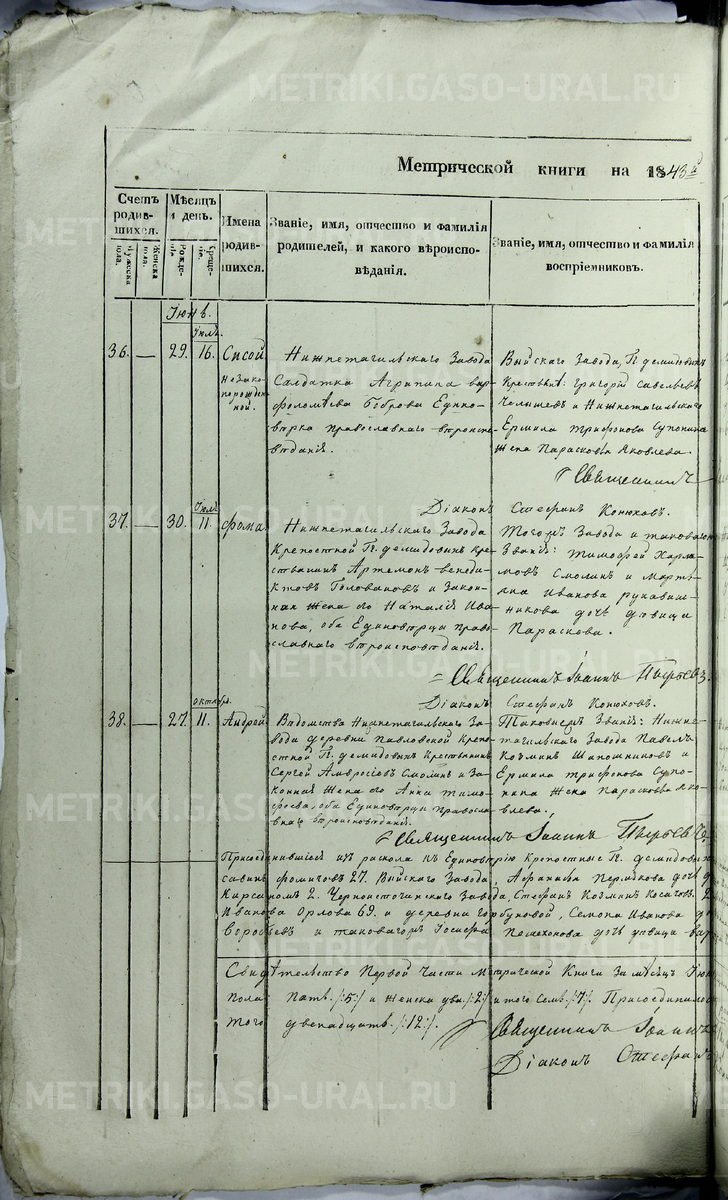 METRIKI.GASO-URAL.RU
Метрической книги на 1843й
Счетъ родив-шихся.
Мѣсяцъ и день.
Имена родив-шихся.
Званіе, имя, отчество и фамилія родителей, и какого вѣроиспо-вѣданія.
Званіе, имя, отчество и фамилія воспріемниковъ.
Мужеска пола.
Женска пола.
Рожде-нія.
Креще-нія.
Іюнь.
Іюль.
36. — 29. 16. Сисой
незако-норожден-ной.
Нижнетагильскаго Завода
Салдатка Агрипина Вар-
фоломѣева Боброва Едино-
вѣрка православнаго вѣроиспо-
вѣданія.
Выйскаго Завода, Гг. Демидовыхъ
Крестьян: Григорій Савельевъ
Челышев и Нижнетагильскаго
Ермила Трифонова Супонина
жена Парасковья Яковлева.
Священникъ
Діаконъ Стефанъ Конюховъ.
Іюль
37. — 30. 11. Фома
Нижнетагильскаго Завода
Крепостной Гг. Демидовыхъ кре-
стьянинъ Артемонъ Венеди-
ктовъ Головановъ и Закон-
ная жена его Наталія Ива-
нова, оба Единовѣрцы Право-
славнаго вѣроисповѣданія.
Тогожъ Завода и таковагожъ
Званія: Тимофей Харла-
мовъ Смолинъ и Марть-
яна Иванова Рукавиш-
никова дочь дѣвица
Параскова.
Священникъ Іоаннъ Пырьевъ.
Діаконъ Стефанъ Конюховъ.
октября.
38. — 27. 11. Андрей
Вѣдомства Нижнетагильскаго За-
вода деревни Павловской Крепо-
стной Гг. Демидовыхъ Крестьянинъ
Сергей Амвросіевъ Смолинъ и За-
конная жена его Анна Тимо-
феева, оба Единовѣрцы Правосла-
внаго вѣроисповѣданія.
Таковыежъ Званія: Нижне-
тагильскаго Завода Павелъ
Козминъ Шапошниковъ и
Ермила Трифонова Супо-
нина жена Парасковья Яко-
влева.
Священникъ Іоаннъ Пырьевъ
Присоединившіеся изъ раскола къ Единовѣрію крепостные Гг. Демидовыхъ
27. Выйскаго Завода, дочь
2. Черноисточинскаго Завода, Стефанъ Козминъ
Иванова Орлова 69. и деревни Горбуновой, Семона Иванова
Воробьевъ и таковагожъ Іосифа Пешехонова дочь дѣвица Вар
Свидѣтельство Первой Части Метрической Книги За мѣсяцъ Іюнь
пола Пять /:5:/ и женска два /:2:/ итого Семь /:7:/. Присоединилось
того двенадцать /:12:/.
Священникъ Іоаннъ
Діаконъ Стефанъ
METRIKI.GASO-URAL.RU